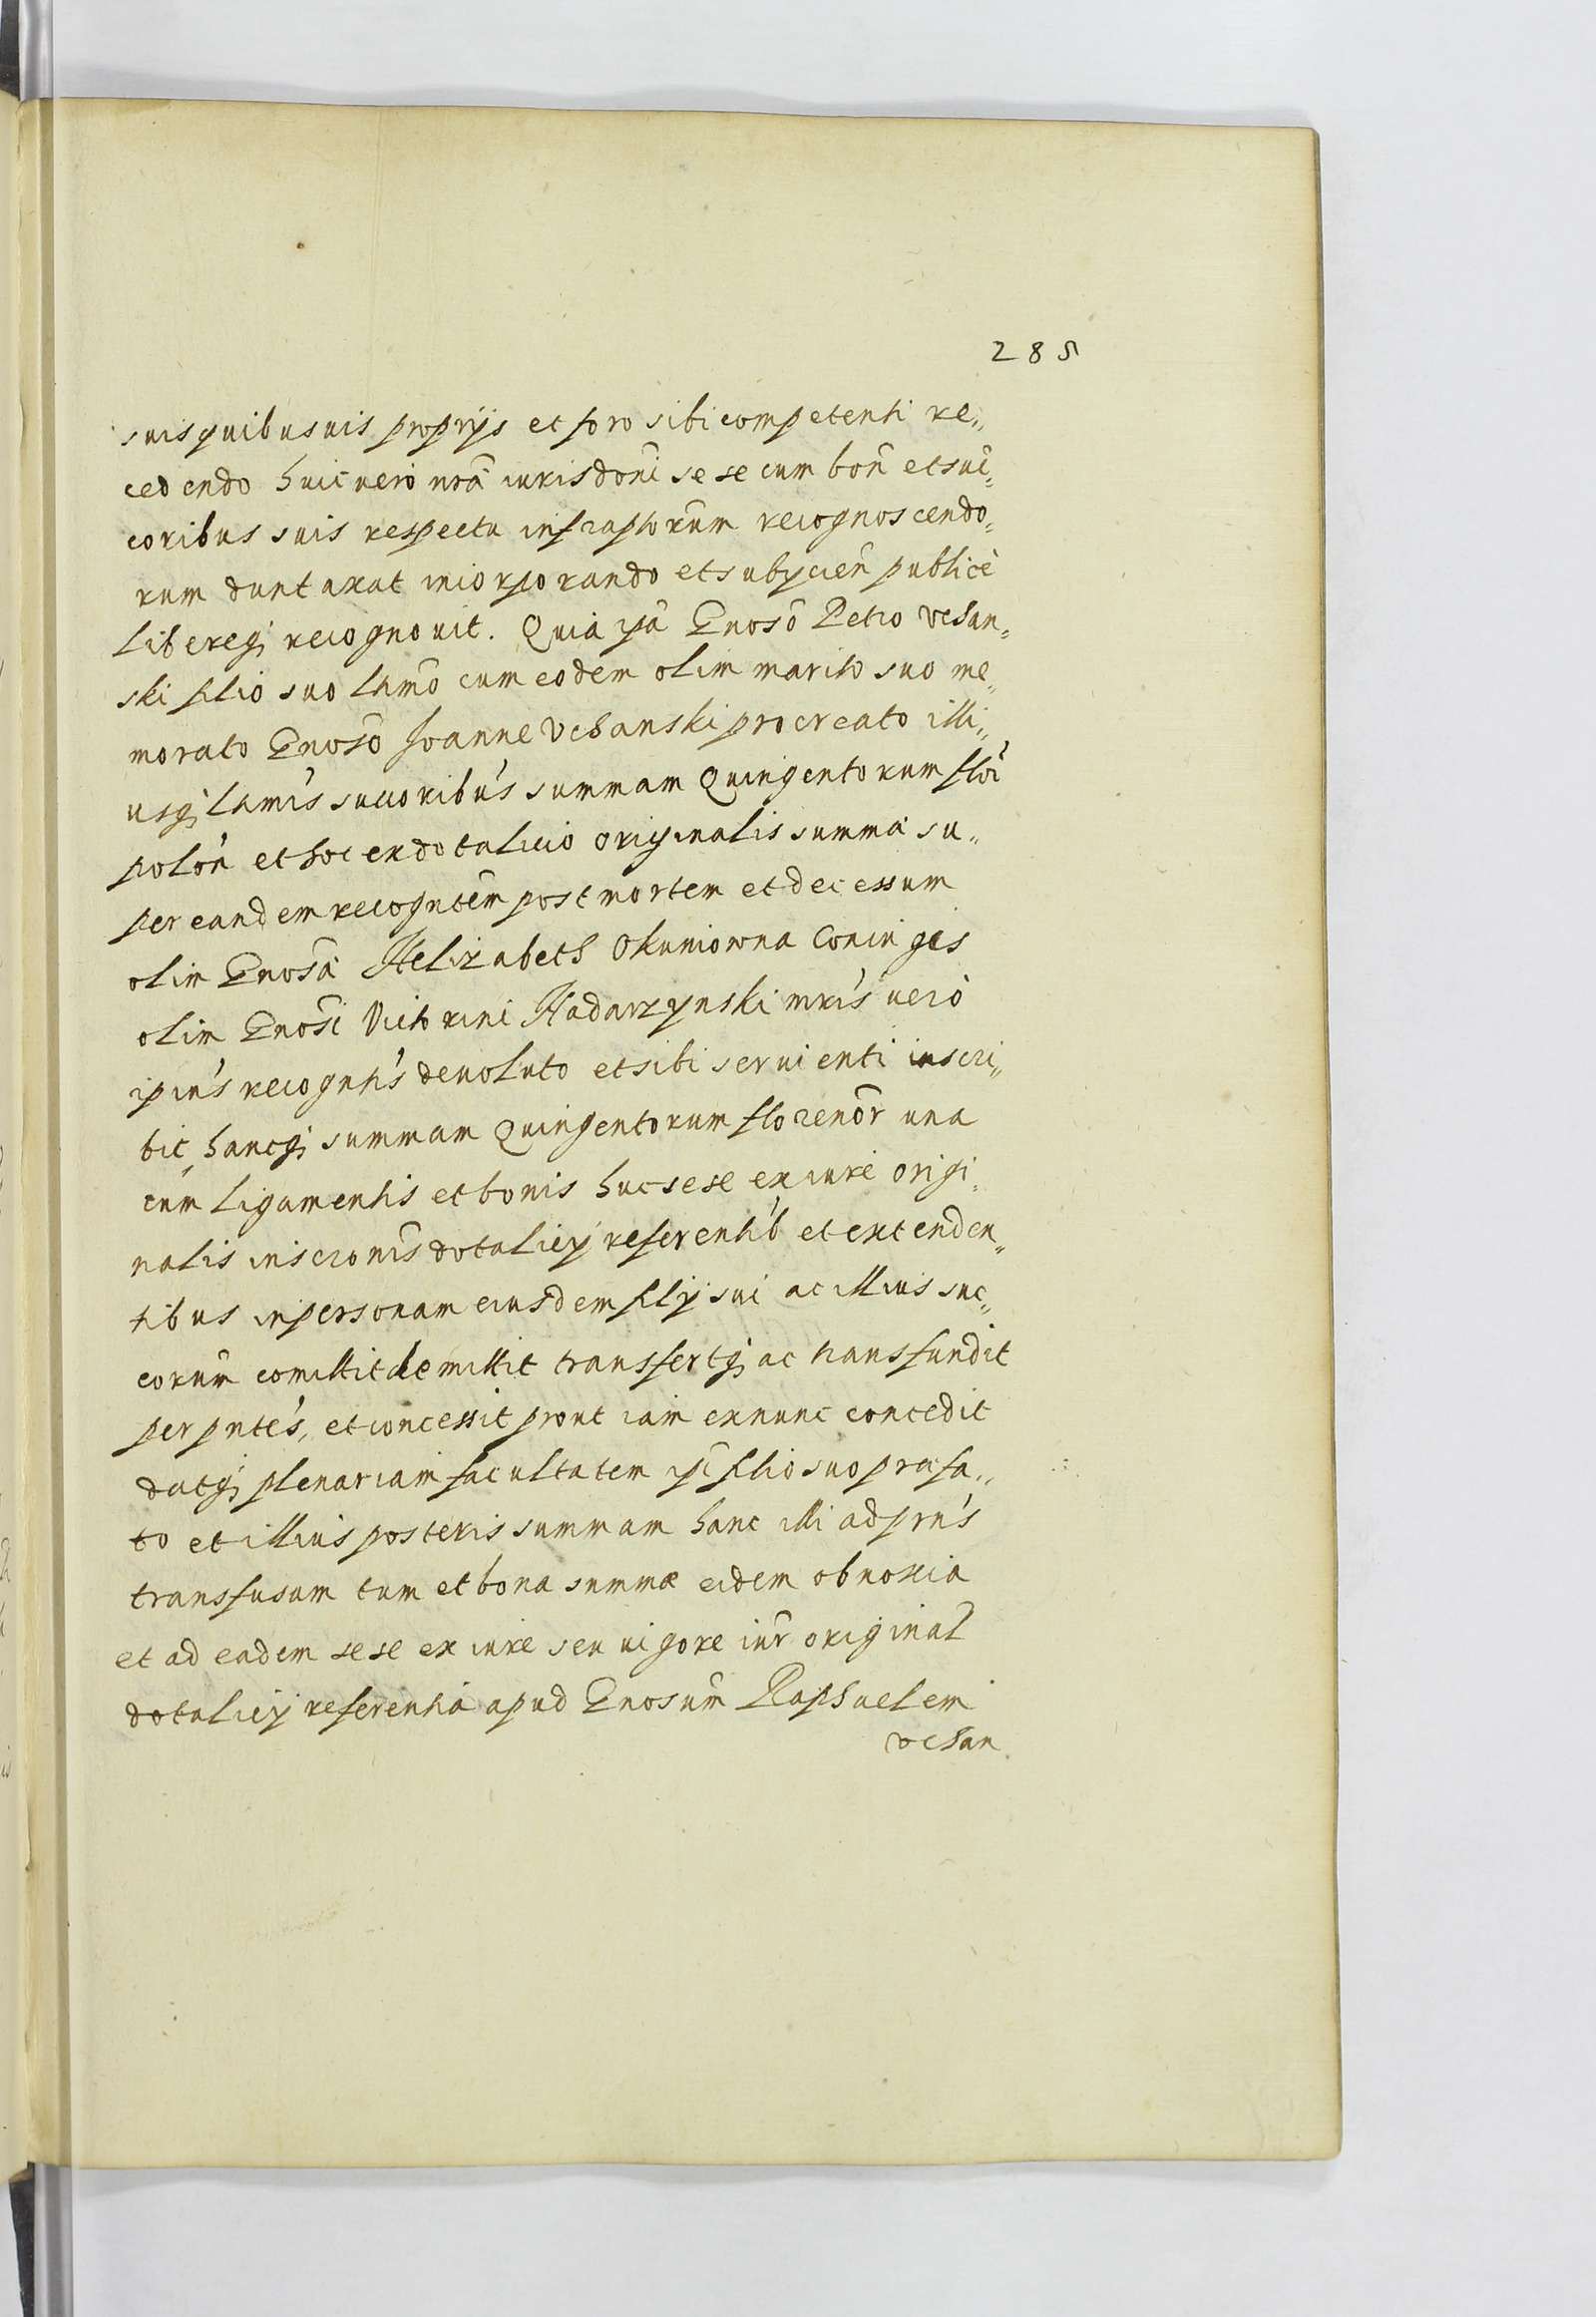 285
suis quibusuis proprijs et foro sibi competenti re„
cedendo huic uero nrã iurisdoni se se cum bon̄ et suc„
coribus suis respectu infraptorum recognoscendo„
rum duntaxat incorporando et subycien̄ publicè
libereq; recognouit. Quia ipã Gnosõ Petro Vchan„
ski filio suo lĩmo cum eodem olim marito suo me„
morato Gnosõ Joanne Vchanski procreato illi„
usq; lĩmis succoribus summam Quingentorum flõr
polon̄ et hoc ex dotalicio originalis summa su„
per eandem recogntem post mortem et decessum
olim Gnosã Helizabeth Okuniowna Coniuges
olim Gnosi Victorini Nadarzynski mris uerò
ipius recogntis deuoluto et sibi seruienti inscri„
bit, hancq; summam Quingentorum florenor̄ una
cum ligamentis et bonis huc sese ex iure origi„
nalis inscronis dotalicÿ referentib et extenden„
tibus in personam eiusdem filÿ sui ac illius suc„
corum comittit demittit transfertq; ac transfundit
per pntes, et concessit prout iam exnunc concedit
datq; plenariam facultatem ipi filio suo praefa„
to et illius posteris summam hanc illi ad prns
transfusam tum et bona summæ eidem obnoxia
et ad eadem sese ex iure seu uigore iur̄ original
dotalicÿ referentia apud Gnosum Raphaelem
Vchan